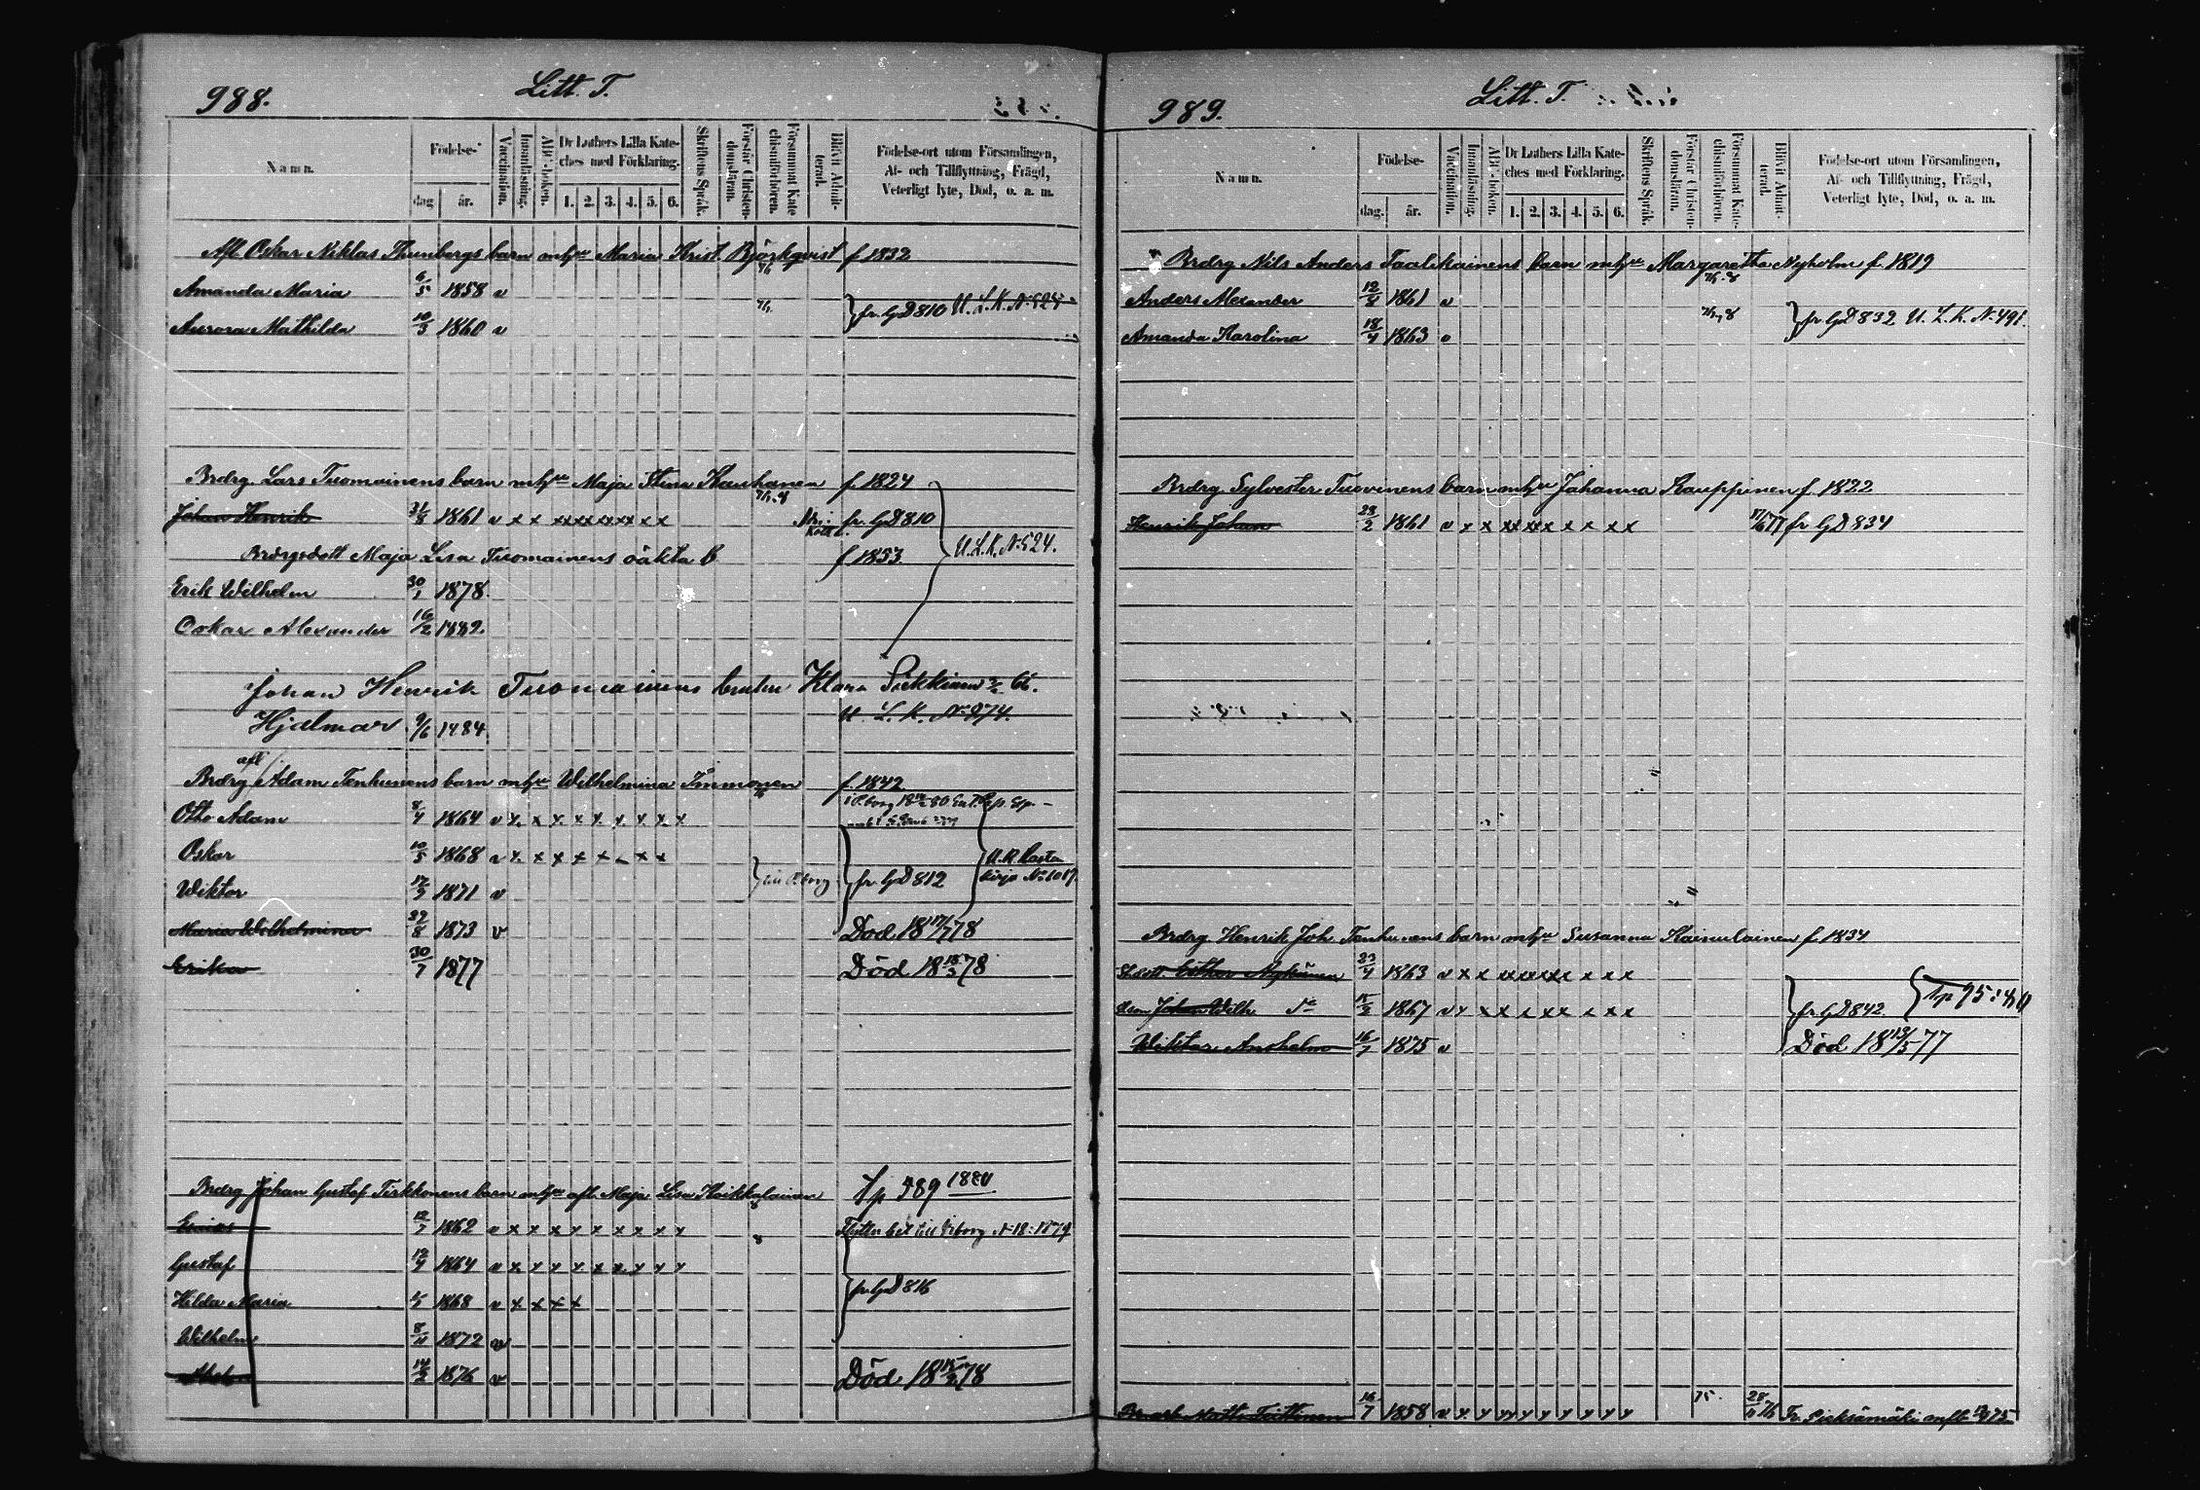 988.
Litt. T.
Namn.
Födelse-
dag
år.
Vaccination.
Innanläsning.
ABC-boken.
Dr Luthers Lilla Kate-
ches med Förklaring.
1. 2. 3. 4. 5. 6.
Skriftens Språk.
Förstår Christen-
domsläran.
Försummat Kate
chismiförhören.
Blifvit Admit-
terad.
Födelse-ort utom Församlingen,
Af- och Tillflyttning, Frägd,
Veterligt lyte, Död, o. a. m.
Afl. Oskar Niklas Thunbergs barn mhu Maria Krist. Björkqvist f. 1832
Amanda Maria 6/5 1858 v
fr. GD 810 U. L. K. No 524
Aurora Mathilda 10/3 1860 v
Brdrg. Lars Tuomainens barn mhu Maja Stina Kauhanen f. 1824
Johan Henrik 31/8 1861 v x x xx x x x x x x fr. GD 810
U. L. K. No 524.
Brdrgsdott Maja Lisa Tuomainens oäkta B f 1853
Erik Wilhelm 30/1 1878
Oskar Alexander 16/2 1882.
Johan Henrik Tuomainens hustru Klara Pirkkinen 66.
U. L. K. No 974.
Hjalmar 9/6 1884
afl
Brdrg Adam Tenhunens barn mhu Wilhelmina Immonen f. 1842
Otto Adam 8/4 1864 v x x x x x x x x x
Oskar 10/5 1868 v x x x x x x x
U. R. Kasta
kirja No 1019.
Wiktor 17/9 1871 v
till Wiborg
fr. GD 812
Maria Wilhelmina 29/8 1873 v Död 18 17/7 78
Erika 30/7 1877 Död 18 18/2 78
Brdrg Johan Gustaf Tirkkonens barn mhu afl. Maja Lisa Kaikkalainen Sp 989 1880
12/7 1862 v x x x x x x x x x Flyttn bet till Wiborg No 18: 1879
Gustaf 17/9 1864 v x x x x x x x x x
fr. GD 816
Hilda Maria 1868 v x x x x
Wilhelm 8/11 1872 v
14/2 1876 v Död 18 15/2 78
989.
Litt. T.
Namn.
Födelse-
dag.
år.
Vaccination.
Innanläsning.
ABC-boken.
Dr Luthers Lilla Kate-
ches med Förklaring.
1. 2. 3. 4. 5. 6.
Skriftens Språk.
Förstår Christen-
domsläran.
Försummat Kate-
chismiförhören.
Blifvit Admit-
terad.
Födelse-ort utom Församlingen,
Af- och Tillflyttning, Frägd,
Veterligt lyte, Död, o. a. m.
Brdrg Nils Anders Taalikainens barn mhu Margaretha Nyholm f. 1819
Anders Alexander 12/8 1861 v
fr. GD 832 U. L. K. No 491.
Amanda Karolina 18/4 1863 v
Brdrg Sylvester Tuovinens barn mhu Johanna Kauppinen f. 1822
Henrik Johan 23/2 1861 v x x xx x x x x x x 17/6 77 fr GD 834
Brdrg Henrik Joh Tenhunens barn mhu Susanna Kainulainen f. 1834
Esther 23/4 1863 v x x x x x x x x x
Johan Wilh. 15/2 1867 v x x x x x x x x fr GD 842
Wiktor Anshelm 16/7 1875 v Död 18 13/5 77
Matts Toittonen 16/7 1858 v x x x x x x x x x 75. 28/6 76 Fr. Pieksämäki anflt 75